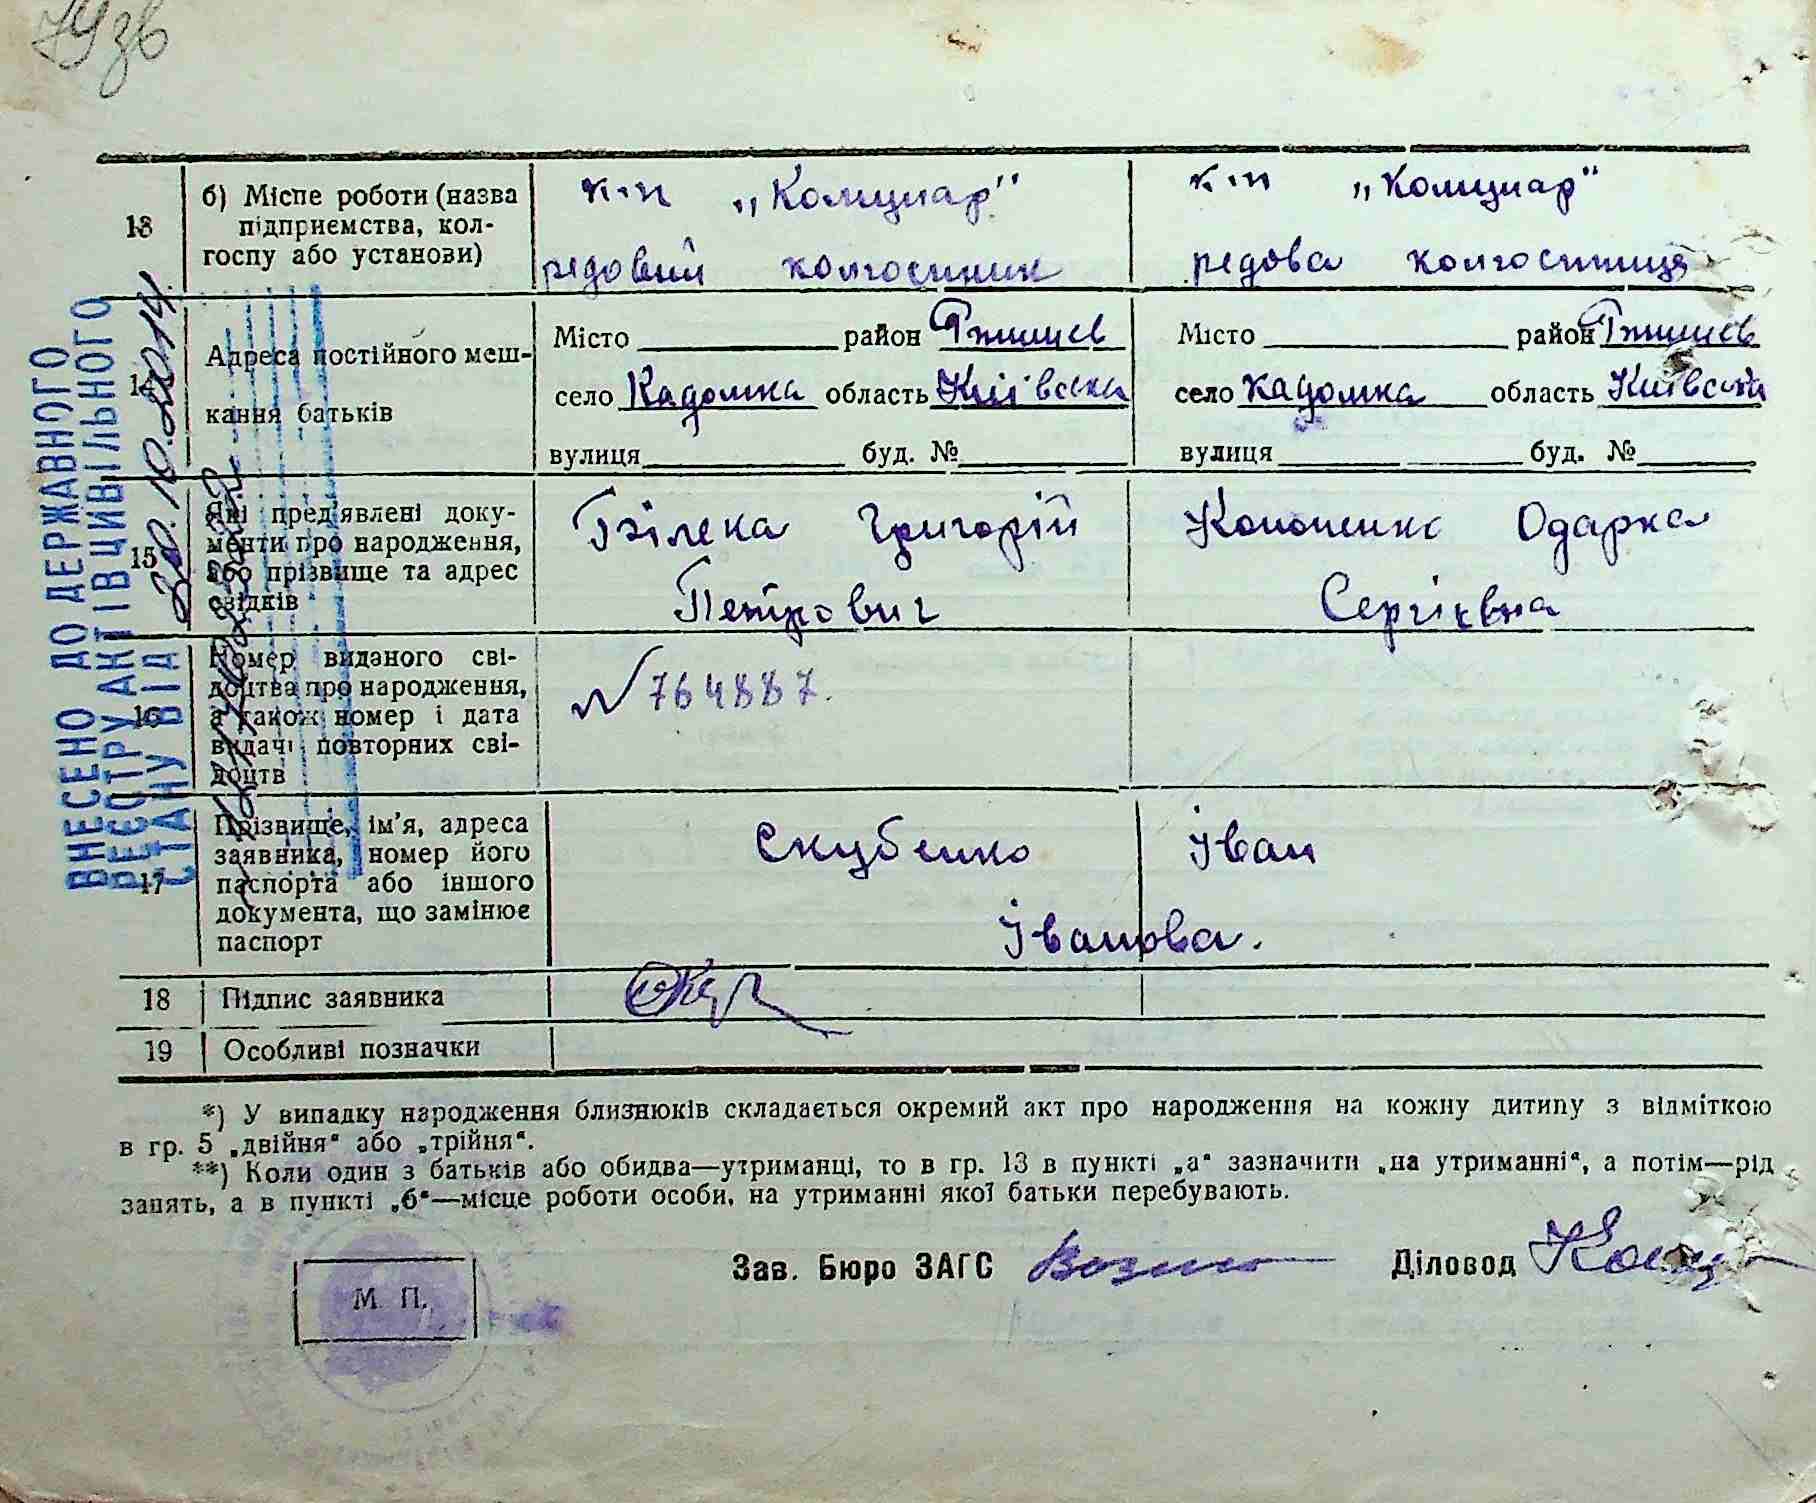 79 зв
13 б) Місце роботи (назва підприємства, колгоспу або установи)
к-п „Комунар" к-п „Комунар"
редовий колгоспник редова колгоспниця
14 Адреса постійного мешкання батьків
Місто район Ржищев Місто район Ржищев
село Кадомка область Київська село Кадомка область Київська
вулиця буд. № вулиця буд. №
15 Які пред'явлені документи про народження, або прізвище та адрес свідків
Білека Григорій Кононенко Одарка
Петрович Сергієвна
16 Номер виданого свідоцтва про народження, а також номер і дата видачі повторних свідоцтв
№ 764887.
17 Прізвище, ім'я, адреса заявника, номер його паспорта або іншого документа, що замінює паспорт
Скубенко Іван
Іванова.
18 Підпис заявника
19 Особливі позначки
*) У випадку народження близнюків складається окремий акт про народження на кожну дитину з відміткою
в гр. 5 „двійня" або „трійня".
**) Коли один з батьків або обидва—утриманці, то в гр. 13 в пункті „а" зазначити „на утриманні", а потім—рід
занять, а в пункті „б"—місце роботи особи, на утриманні якої батьки перебувають.
Зав. Бюро ЗАГС Діловод
М. П.
ВНЕСЕНО ДО ДЕРЖАВНОГО
РЕЄСТРУ АКТІВ ЦИВІЛЬНОГО
СТАНУ ВІД 30.10.2014